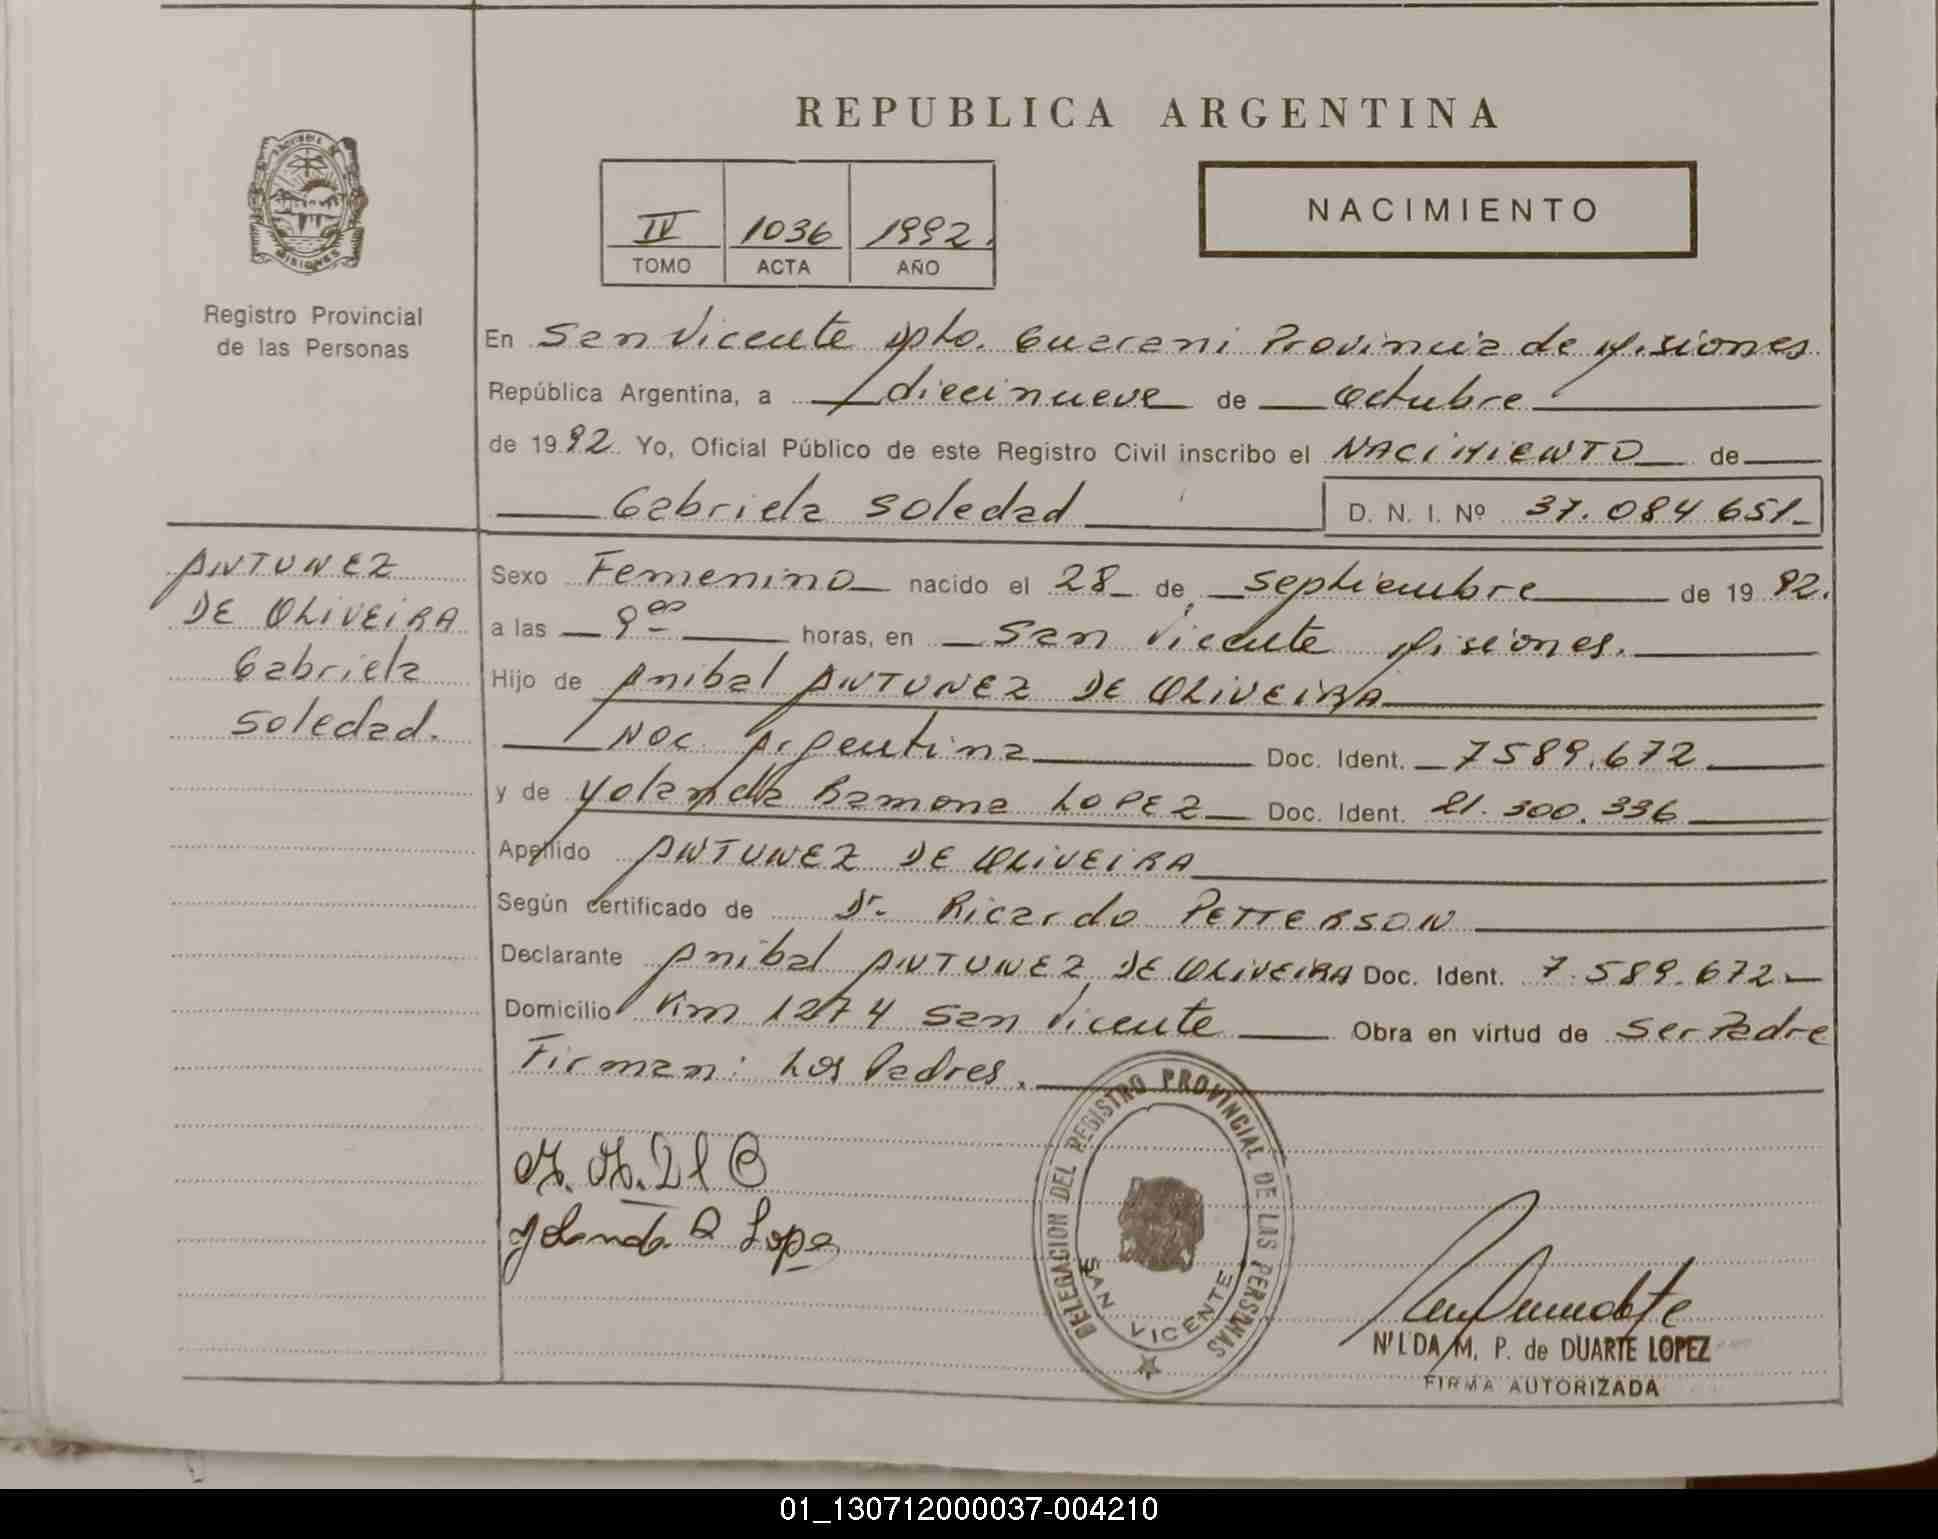 REPUBLICA ARGENTINA
MISIONES
Registro Provincial
de las Personas
IV 1036 1992.
TOMO ACTA AÑO
NACIMIENTO
En San Vicente Dpto. Guarani Provincia de Misiones
República Argentina, a diecinueve de Octubre
de 1992 Yo, Oficial Público de este Registro Civil inscribo el NACIMIENTO de
Gabriela Soledad D. N. I. Nº 37.084 651
ANTUNEZ
DE OLIVEIRA
Gabriela
Soledad.
Sexo Femenino nacido el 28 de Septiembre de 1992.
a las 9ºº horas, en San Vicente Misiones.
Hijo de Anibal ANTUNEZ DE OLIVEIRA
Nac. Argentina Doc. Ident. 7589.672
y de Yolanda Ramona LOPEZ Doc. Ident. 21.300.336
Apellido ANTUNEZ DE OLIVEIRA
Según certificado de Dr. Ricardo PETTERSON
Declarante Anibal ANTUNEZ DE OLIVEIRA Doc. Ident. 7.589.672
Domicilio Km 1274 San Vicente Obra en virtud de Ser Padre
Firman: Los Padres.
Yolanda R Lopez
DELEGACION DEL REGISTRO PROVINCIAL DE LAS PERSONAS
SAN VICENTE
NILDA M. P. de DUARTE LOPEZ
FIRMA AUTORIZADA
01_130712000037-004210